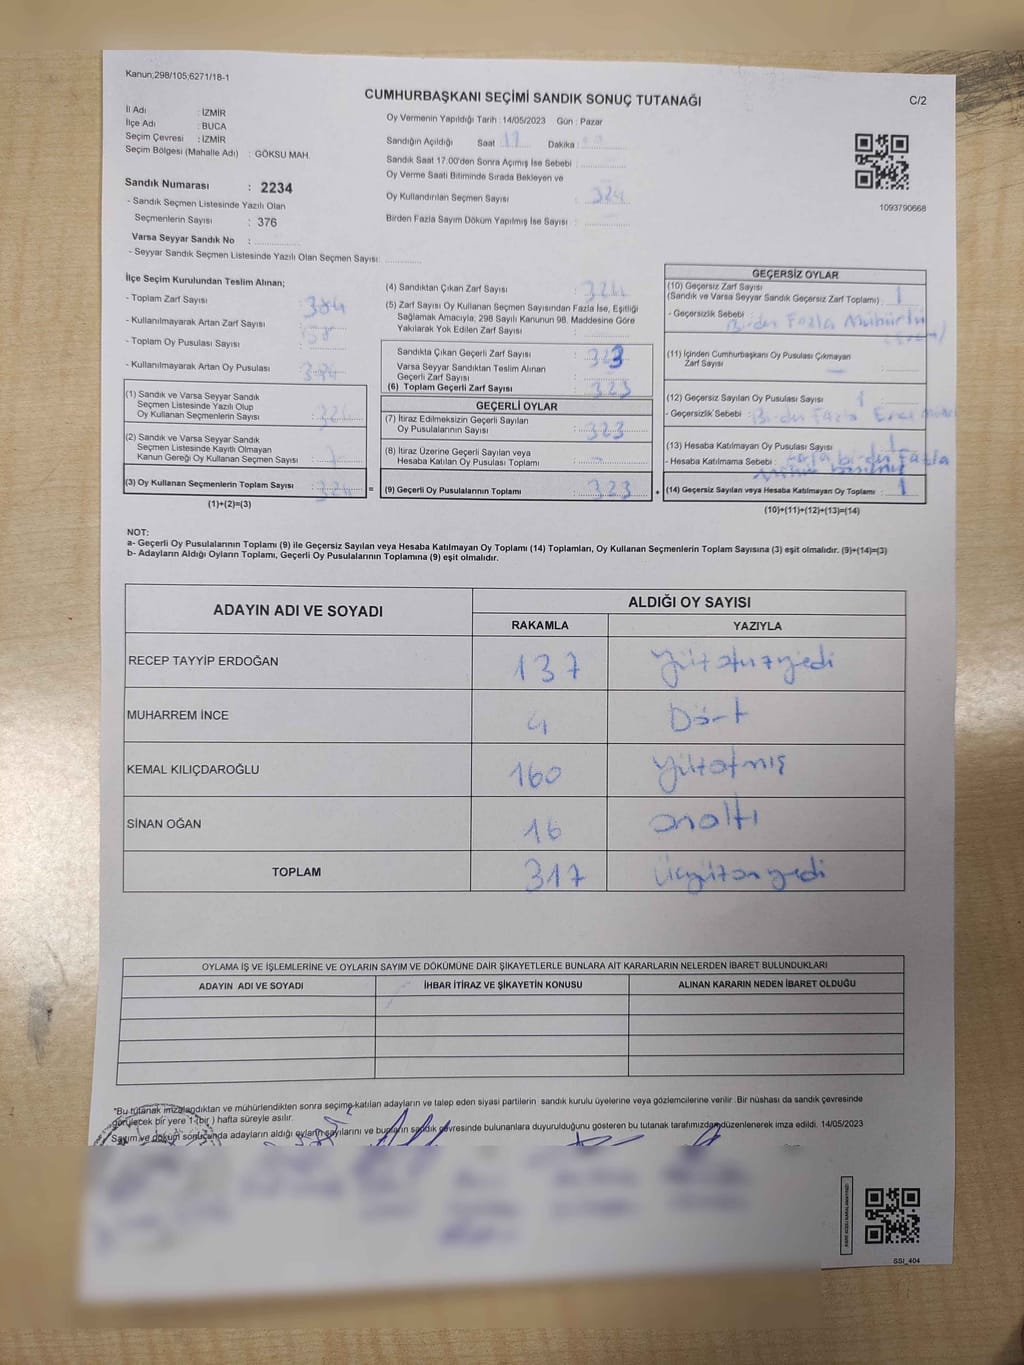 Kanun;298/105;6271/18-1
CUMHURBAŞKANI SEÇİMİ SANDIK SONUÇ TUTANAĞI
C/2
İl Adı : İZMİR
İlçe Adı : BUCA
Seçim Çevresi : İZMİR
Seçim Bölgesi (Mahalle Adı) : GÖKSU MAH.
Sandık Numarası : 2234
- Sandık Seçmen Listesinde Yazılı Olan
Seçmenlerin Sayısı : 376
Varsa Seyyar Sandık No :
- Seyyar Sandık Seçmen Listesinde Yazılı Olan Seçmen Sayısı:
Oy Vermenin Yapıldığı Tarih : 14/05/2023 Gün : Pazar
Sandığın Açıldığı Saat 17 Dakika :
Sandık Saat 17.00'den Sonra Açımış İse Sebebi :
Oy Verme Saati Bitiminde Sırada Bekleyen ve
Oy Kullandırılan Seçmen Sayısı : 324
Birden Fazla Sayım Döküm Yapılmış İse Sayısı :
1093790668
İlçe Seçim Kurulundan Teslim Alınan;
- Toplam Zarf Sayısı : 384
- Kullanılmayarak Artan Zarf Sayısı : 58
- Toplam Oy Pusulası Sayısı :
- Kullanılmayarak Artan Oy Pusulası
(1) Sandık ve Varsa Seyyar Sandık
Seçmen Listesinde Yazılı Olup
Oy Kullanan Seçmenlerin Sayısı : 324
(2) Sandık ve Varsa Seyyar Sandık
Seçmen Listesinde Kayıtlı Olmayan
Kanun Gereği Oy Kullanan Seçmen Sayısı :
(3) Oy Kullanan Seçmenlerin Toplam Sayısı : 324 =
(1)+(2)=(3)
(4) Sandıktan Çıkan Zarf Sayısı : 324
(5) Zarf Sayısı Oy Kullanan Seçmen Sayısından Fazla İse, Eşitliği
Sağlamak Amacıyla, 298 Sayılı Kanunun 98. Maddesine Göre
Yakılarak Yok Edilen Zarf Sayısı :
Sandıkta Çıkan Geçerli Zarf Sayısı : 323
Varsa Seyyar Sandıktan Teslim Alınan
Geçerli Zarf Sayısı :
(6) Toplam Geçerli Zarf Sayısı : 323
GEÇERLİ OYLAR
(7) İtiraz Edilmeksizin Geçerli Sayılan
Oy Pusulalarının Sayısı : 323
(8) İtiraz Üzerine Geçerli Sayılan veya
Hesaba Katılan Oy Pusulası Toplamı : -
(9) Geçerli Oy Pusulalarının Toplamı : 323 +
GEÇERSİZ OYLAR
(10) Geçersiz Zarf Sayısı
(Sandık ve Varsa Seyyar Sandık Geçersiz Zarf Toplamı) : 1
- Geçersizlik Sebebi : Birden Fazla Mühürlü
(11) İçinden Cumhurbaşkanı Oy Pusulası Çıkmayan
Zarf Sayısı : -
(12) Geçersiz Sayılan Oy Pusulası Sayısı : 1
- Geçersizlik Sebebi : Birden Fazla
(13) Hesaba Katılmayan Oy Pusulası Sayısı : 1
- Hesaba Katılmama Sebebi : birden Fazla
(14) Geçersiz Sayılan veya Hesaba Katılmayan Oy Toplamı : 1
(10)+(11)+(12)+(13)=(14)
NOT:
a- Geçerli Oy Pusulalarının Toplamı (9) ile Geçersiz Sayılan veya Hesaba Katılmayan Oy Toplamı (14) Toplamları, Oy Kullanan Seçmenlerin Toplam Sayısına (3) eşit olmalıdır. (9)+(14)=(3)
b- Adayların Aldığı Oyların Toplamı, Geçerli Oy Pusulalarının Toplamına (9) eşit olmalıdır.
ADAYIN ADI VE SOYADI ALDIĞI OY SAYISI
RAKAMLA YAZIYLA
RECEP TAYYİP ERDOĞAN 137 yüzotuzyedi
MUHARREM İNCE 4 Dört
KEMAL KILIÇDAROĞLU 160 yüzatmış
SİNAN OĞAN 16 onaltı
TOPLAM 317 Üçyüzonyedi
OYLAMA İŞ VE İŞLEMLERİNE VE OYLARIN SAYIM VE DÖKÜMÜNE DAİR ŞİKAYETLERLE BUNLARA AİT KARARLARIN NELERDEN İBARET BULUNDUKLARI
ADAYIN ADI VE SOYADI İHBAR İTİRAZ VE ŞİKAYETİN KONUSU ALINAN KARARIN NEDEN İBARET OLDUĞU
"Bu tutanak imzalandıktan ve mühürlendikten sonra seçime katılan adayların ve talep eden siyasi partilerin sandık kurulu üyelerine veya gözlemcilerine verilir. Bir nüshası da sandık çevresinde
görülecek bir yere 1 (bir) hafta süreyle asılır.
Sayım ve döküm sonucunda adayların aldığı oyların sayılarını ve bunların sandık çevresinde bulunanlara duyurulduğunu gösteren bu tutanak tarafımızdan düzenlenerek imza edildi. 14/05/2023
SSI_404